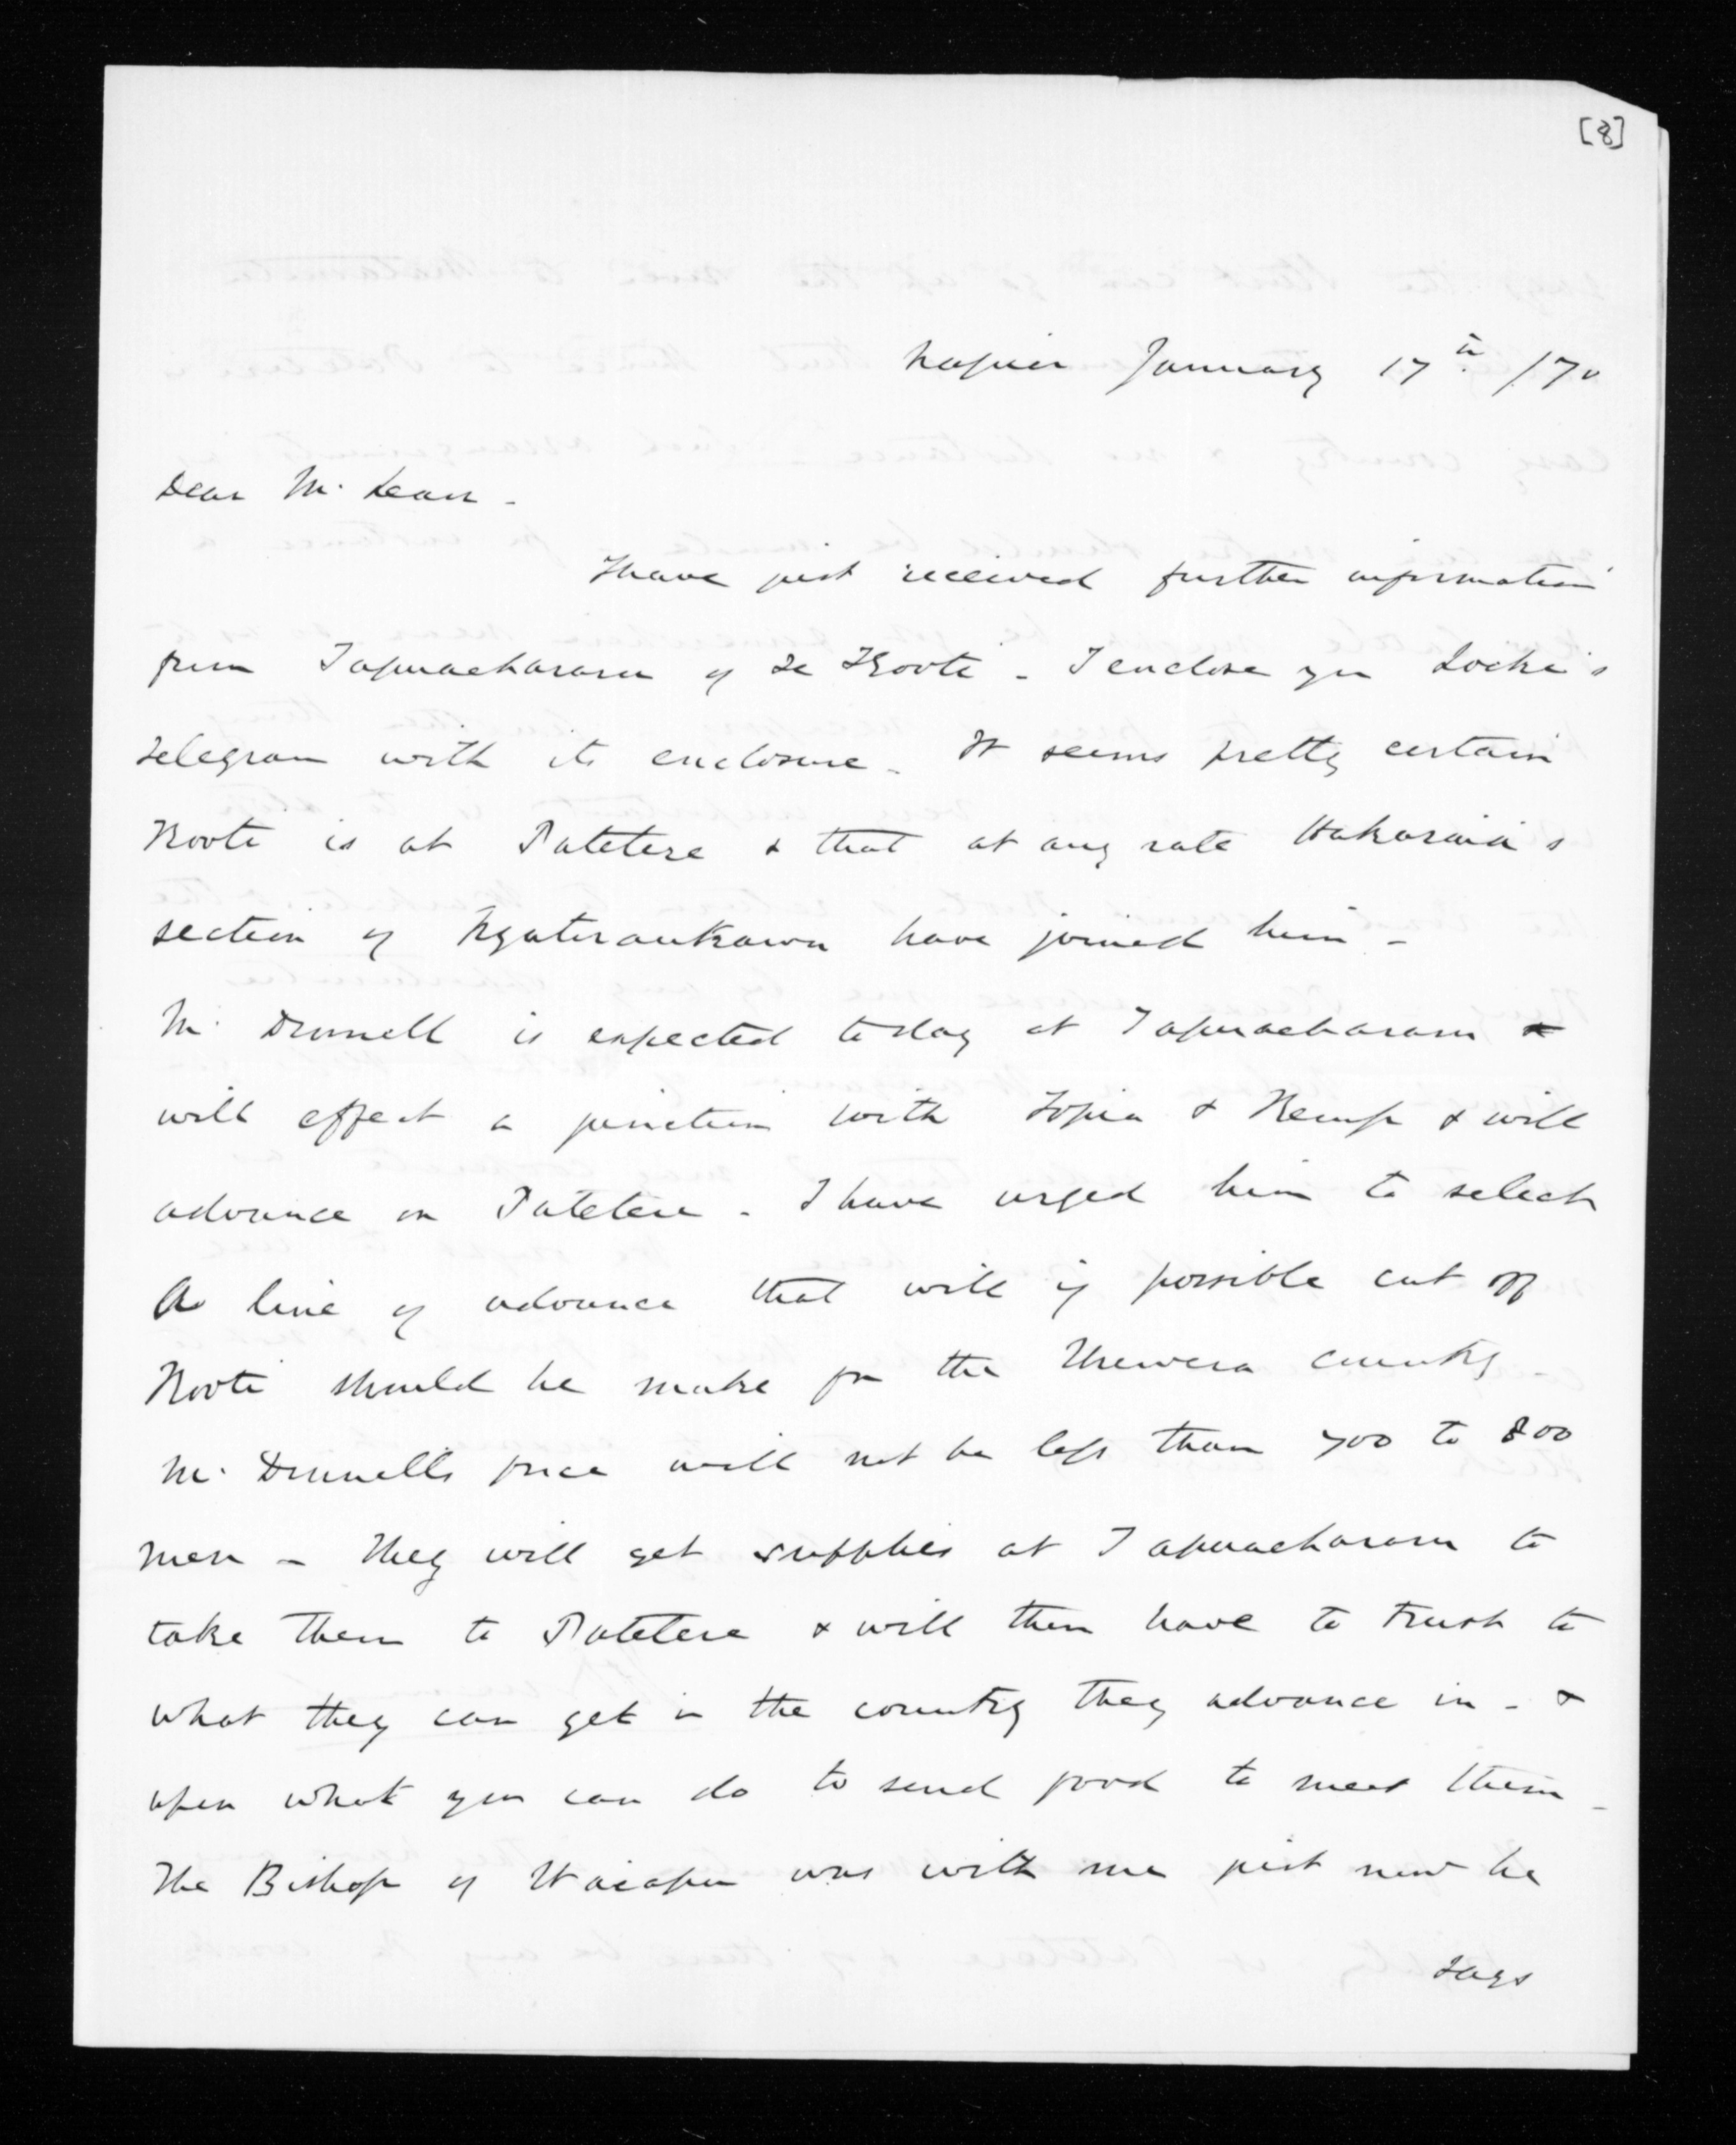 [8]
Napier January 17th /70
Dear McLean -
I have just received further information
from Tapuaeharuru of Te Kooti - I enclose you Locke's
telegram with its enclosure - It seems pretty certain
Kooti is at Patetere & that at any rate Hakaraia's
section of Ngatiraukawa have joined him -
McDonnell is expected today at Tapuaeharuru &
will effect a junction with Topia & Kemp & will
advance on Patetere - I have urged him to select
a line of advance that will if possible cut off
Kooti should he make for the Urewera country -
McDonnells force will not be less than 700 to 800
men - They will get supplies at Tapuaeharuru to
take them to Patetere & will then have to trust to
what they can get in the country they advance in - &
upon what you can do to send food to meet them -
The Bishop of Waiapu was with me just now he
says